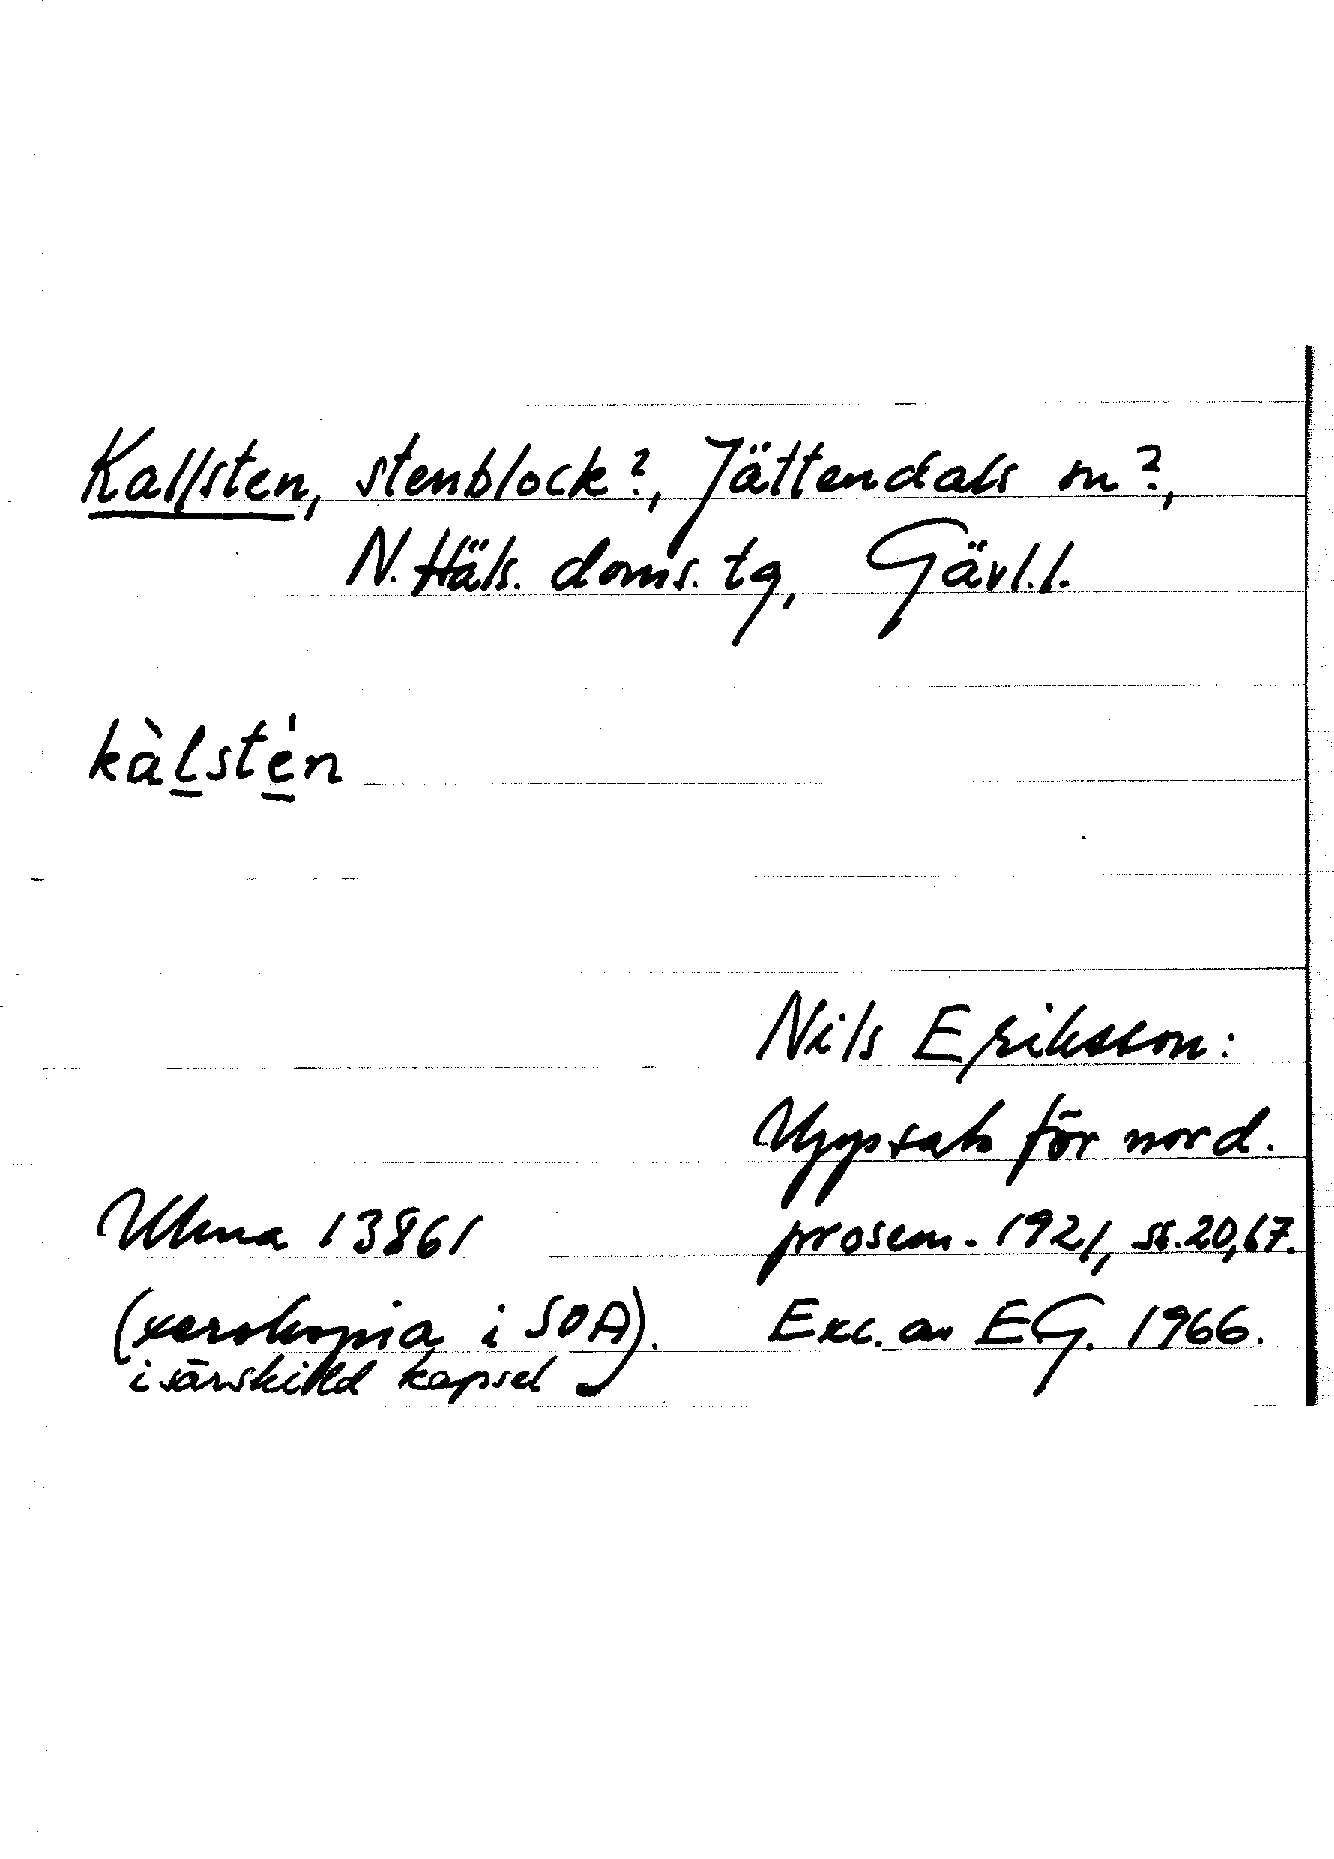 Kallsten, stenblock?, Jättendals sn?,
N. Häls. doms. tg, Gävl.l.
kàlstén
Nils Eriksson:
Uppsats för nord.
Ulma 13861 prosem. 1921, ss. 20, 67.
(xerokopia i SOA). Exc. av EG. 1966.
i särskild kapsel